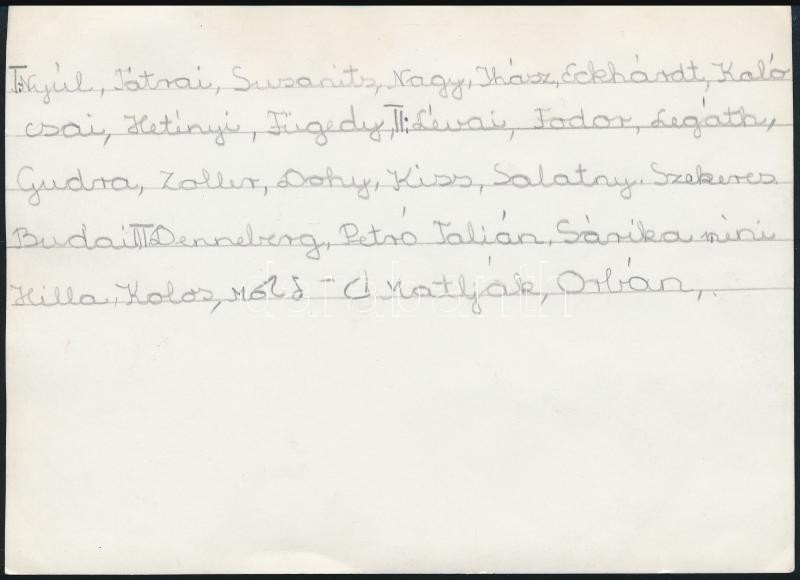 I. Nyúl, Tátrai, Susanits, Nagy, Ihász, Eckhárdt, Kaló
csai, Hetényi, Fügedy, II: Lévai, Fodor, Legáth,
Gudra, Zoller, Dohy, Kiss, Salatny. Szekeres
Budai III. Denneberg, Petró Talián, Sárika néni
Hilla, Kolos, Matlják, Orbán,
darabanth